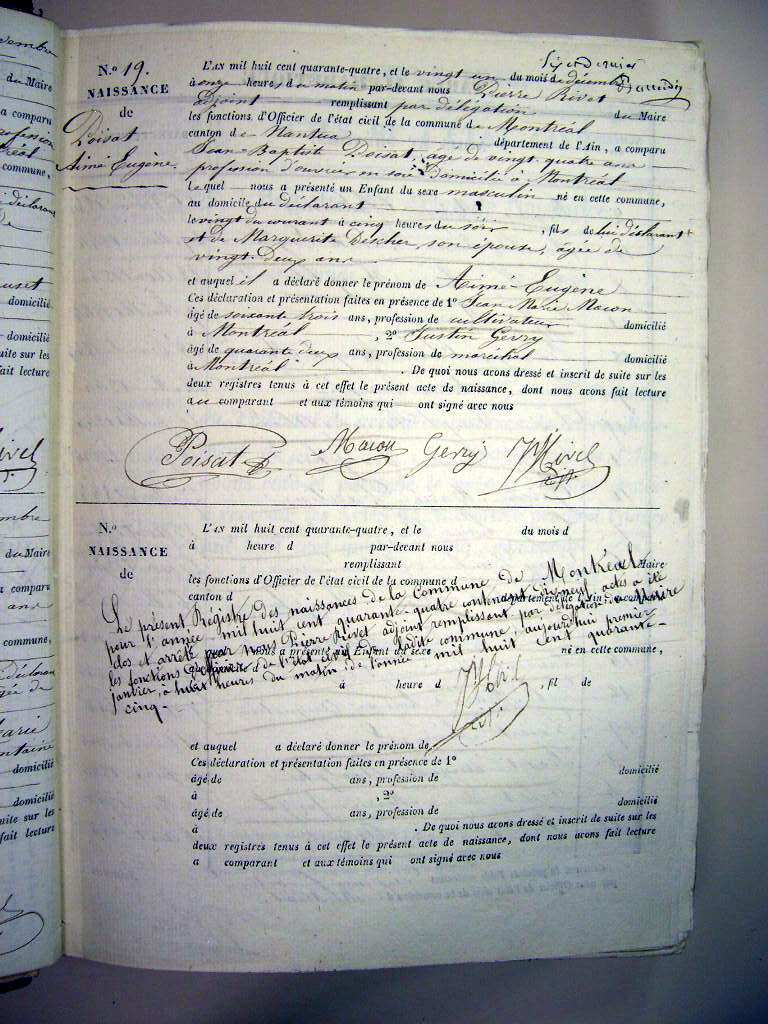 N.o 19.
NAISSANCE
de
Poisat
Aimé Eugène.
Six et Dernier
L'AN mil huit cent quarante-quatre, et le vingt un du mois de décembre
à onze heures du matin par-devant nous Pierre Rivet
adjoint remplissant par délégation du Maire
les fonctions d'Officier de l'état civil de la commune de Montréal
canton de Nantua département de l'Ain, a comparu
Jean Baptiste Poisat, âgé de vingt quatre ans
profession d'ouvrier en soie domicilié à Montréal
Lequel nous a présenté un Enfant du sexe masculin né en cette commune,
au domicile du déclarant
le vingt du courant à cinq heures du soir, fils de lui déclarant
et de Marguerite Discher, son épouse, agée de
vingt deux ans
et auquel il a déclaré donner le prénom de Aimé Eugène
Ces déclaration et présentation faites en présence de 1º Jean Marie Macon
âgé de soixante trois ans, profession de cultivateur domicilié
à Montréal, 2º Justin Gerry
âgé de quarante deux ans, profession de maréchal domicilié
à Montréal. De quoi nous avons dressé et inscrit de suite sur les
deux registres tenus à cet effet le présent acte de naissance, dont nous avons fait lecture
au comparant et aux témoins qui ont signé avec nous
Poisat Macon Gerry Rivet
adjt.
N.o
NAISSANCE
de
L'AN mil huit cent quarante-quatre, et le du mois d
à heure d par-devant nous
remplissant Maire
les fonctions d'Officier de l'état civil de la commune d
canton d département de l'Ain, a comparu
Le présent Régistre des naissances de la Commune de Montréal
pour l'année mil huit cent quarante-quatre contenant dix neuf actes a été
clos et arrêté par nous Pierre Rivet adjoint remplissant par délégation du Maire
les fonctions d'officier de l'état civil de ladite commune, aujourd'hui premier
janvier, à huit heures du matin de l'année mil huit cent quarante-
cinq.
nous a présenté un Enfant du sexe né en cette commune,
à heure d, fil de
Rivet
adjt.
et auquel a déclaré donner le prénom de
Ces déclaration et présentation faites en présence de 1º
âgé de ans, profession de domicilié
à , 2º
âgé de ans, profession de domicilié
à . De quoi nous avons dressé et inscrit de suite sur les
deux registres tenus à cet effet le présent acte de naissance, dont nous avons fait lecture
a comparant et aux témoins qui ont signé avec nous